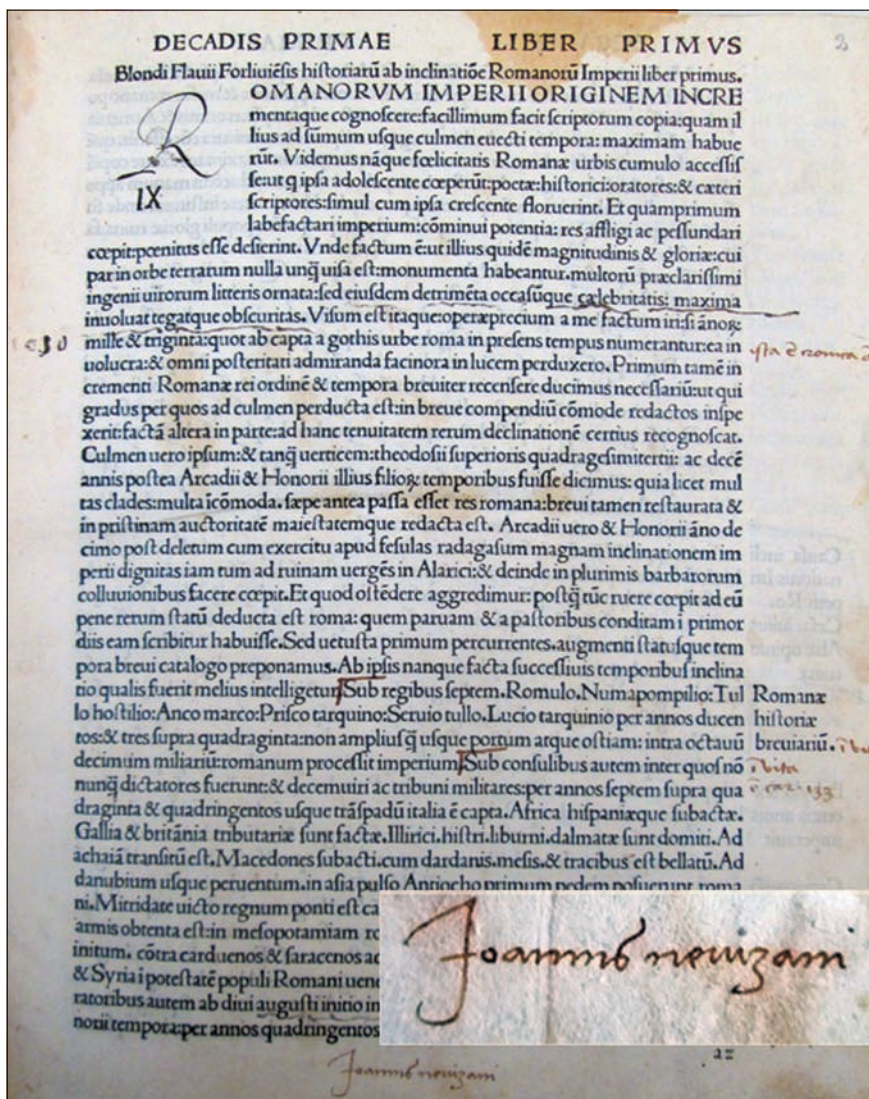 DECADIS PRIMAE LIBER PRIMVS
2
Blondi Flauii Forliuiẽsis historiarũ ab inclinatiõe Romanorũ Imperii liber primus.
R
OMANORVM IMPERII ORIGINEM INCRE
mentaque cognoscere: facillimum facit scriptorum copia: quam il
lius ad sũmum usque culmen euecti tempora: maximam habue
rũt. Videmus nãque fœlicitatis Romanæ urbis cumulo accessis
se: ut q̃ ipsa adolescente cœperũt: poetæ: historici: oratores: & cæteri
IX
scriptores: simul cum ipsa crescente floruerint. Et quamprimum
labefactari imperium: cõminui potentia: res affligi ac pessundari
cœpit: pœnitus esse desierint. Vnde factum ẽ: ut illius quidẽ magnitudinis & gloriæ: cui
par in orbe terratum nulla unq̃ uisa est: monumenta habeantur. multorũ præclarissimi
ingenii uirorum litteris ornata: sed eiusdem detrimẽta occasũque cælebritatis: maxima
inuoluat tegatque obscuritas. Visum est itaque: operæprecium a me factum iri: si ãnoꝝ
1030
mille & triginta: quot ab capta a gothis urbe roma in presens tempus numerantur: ea in
uolucra: & omni posteritati admiranda facinora in lucem perduxero. Primum tamẽ in
crementi Romanæ rei ordinẽ & tempora breuiter recensere ducimus necessariũ: ut qui
gradus per quos ad culmen perducta est: in breue compendiũ cõmode redactos inspe
xerit: factã altera in parte: ad hanc tenuitatem rerum declinationẽ certius recognoscat.
Culmen uero ipsum: & tanq̃ uerticem: theodosii superioris quadragesimitertii: ac decẽ
annis postea Arcadii & Honorii illius filioꝝ temporibus fuisse dicimus: quia licet mul
tas clades: multa ĩcõmoda. sæpe antea passa esset res romana: breui tamen restaurata &
in pristinam auctoritatẽ maiestatemque redacta est. Arcadii uero & Honorii ãno de
cimo post deletum cum exercitu apud fesulas radagasum magnam inclinationem im
perii dignitas iam tum ad ruinam uergẽs in Alarici: & deinde in plurimis barbarorum
colluuionibus facere cœpit. Et quod ostẽdere aggredimur: postq̃ tũc ruere cœpit ad eũ
pene rerum statũ deducta est roma: quem paruam & a pastoribus conditam i primor
diis eam scribitur habuisse. Sed uetusta primum percurrentes. augmenti statusque tem
pora breui catalogo preponamus. Ab ipsis nanque facta successiuis temporibus inclina
tio qualis fuerit melius intelligetur. Sub regibus septem. Romulo. Numapompilio: Tul
lo hostilio: Anco marco: Prisco tarquino: Seruio tullo. Lucio tarquinio per annos ducen
tos: & tres supra quadraginta: non ampliusq̃ usque portum atque ostiam: intra octauũ
decimum miliariũ: romanum processit imperium. Sub consulibus autem inter quos nõ
nunq̃ dictatores fuerunt: & decemuiri ac tribuni militares: per annos septem supra qua
draginta & quadringentos usque trãspadũ italia ẽ capta. Africa hispaniæque subactæ.
Gallia & britãnia tributariæ sunt factæ. Illirici. histri. liburni. dalmatæ sunt domiti. Ad
achaiã transitũ est. Macedones subacti. cum dardanis. mesis. & tracibus est bellatũ. Ad
danubium usque peruentum. in asia pulso Antiocho primum pedem posuerunt roma
ni. Mitridate uicto regnum ponti est
armis obtenta est: in mesopotamiam
initum. cõtra carduenos & saracenos
& Syria i potestatẽ populi Romani
ratoribus autem ab diui augusti initio
norii tempora: per annos quadringentos
Romanæ
historiæ
breuiariũ.
Joannis neuizani
a2
Joannis neuizani